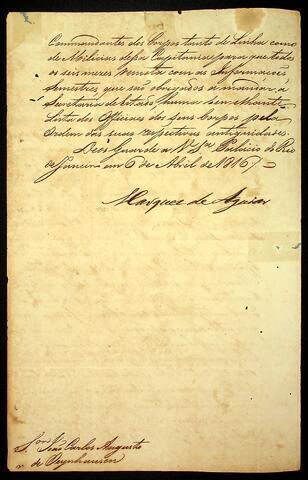 Commandantes dos Corpos tanto de Linha como
de Milicias dessa Capitania para que todos
os seis mezes remeta com as Informacoẽs
semestres que saõ obrigados a mandar á
Secretaria de Estado, huma semelhante
Lista dos Officiaes dos seus Corpos pela
Ordem das suas respectivas antiguidades.
Deos Guarde a V. Sa. Palacio do Rio
de Janeiro em 6 de Abril de 1816,,
Marquez de Aguiar
Snr. João Carlos Augusto
de Oeynhausen